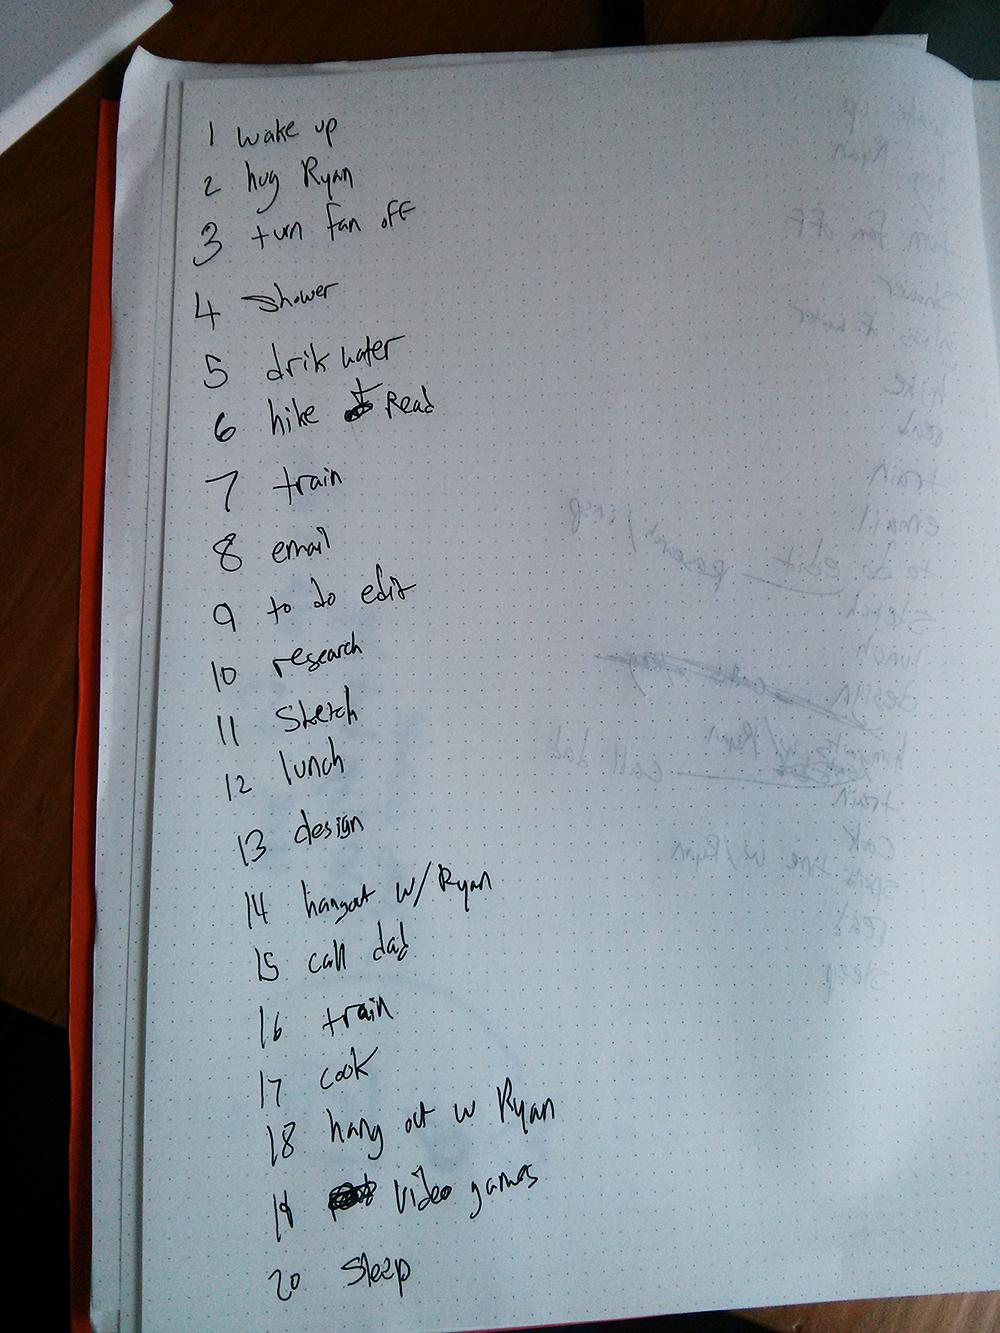 1 wake up
2 hug Ryan
3 turn fan off
4 Shower
5 drik water
6 hike + Read
7 train
8 email
9 to do edit
10 research
11 Sketch
12 lunch
13 design
14 hangout w/ Ryan
15 call dad
16 train
17 cook
18 hang out w Ryan
19 video games
20 sleep